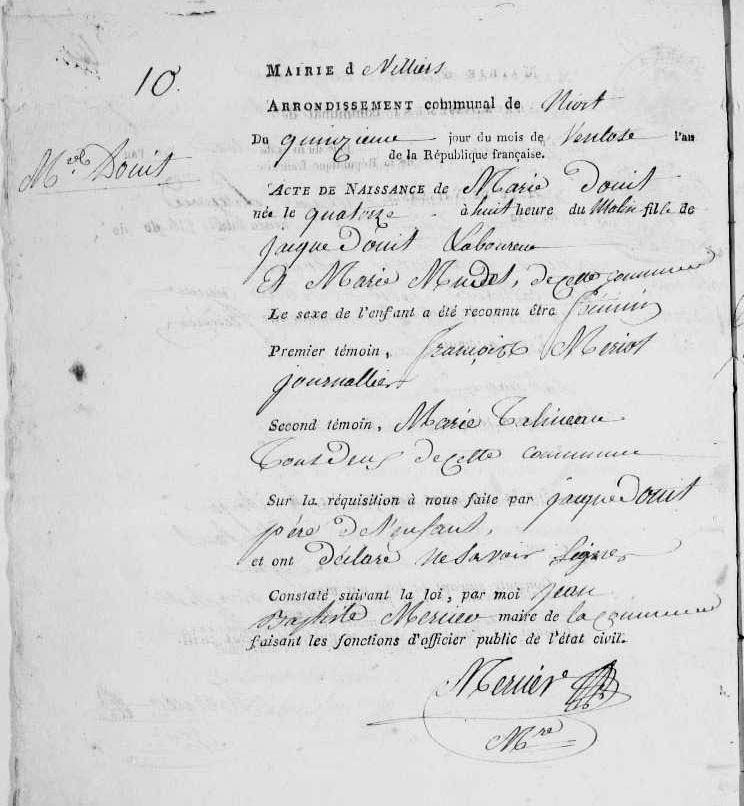 10.
MAIRIE d Villiers
ARRONDISSEMENT communal de Niort
Du quinzieme jour du mois de Ventose l'an
de la République française.
M.ie Douit
ACTE DE NAISSANCE de Marie Douit
née le quatorze à huit heure du Matin fille de
jacque Douit Laboureur
Et Marie Mudet, de cette commune
Le sexe de l'enfant a été reconnu être féminin
Premier témoin, françois Meriot
journallier
Second témoin, Marie
Tous Deux de cette commune
Sur la réquisition à nous faite par jacque Douit
père de l'enfant,
et ont déclaré ne savoir signer
Constaté suivant la loi, par moi jean
Baptiste Mercier maire de la commune
faisant les fonctions d'officier public de l'état civil.
Mercier
M.re